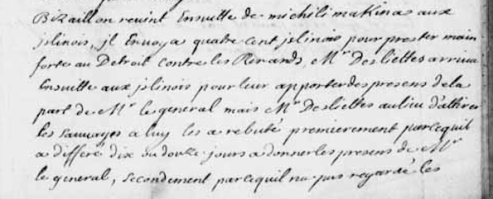 Bizaillon revint Ensuitte de michilimakina aux
jslinois, jl Envoya quatre cent jslinois pour prester main
forte au Detroit contre les Renards, Mr. Desliettes arriva
Ensuitte aux jslinois pour leur apporter des presens de la
part de Mr le general mais Mr Desliettes au lieu d'attirer
les sauvages a luy les a rebuté premierement parcequil
a differé dix ou douze jours a donner les presens de Mr
le general, secondement parcequil na pas regardé les